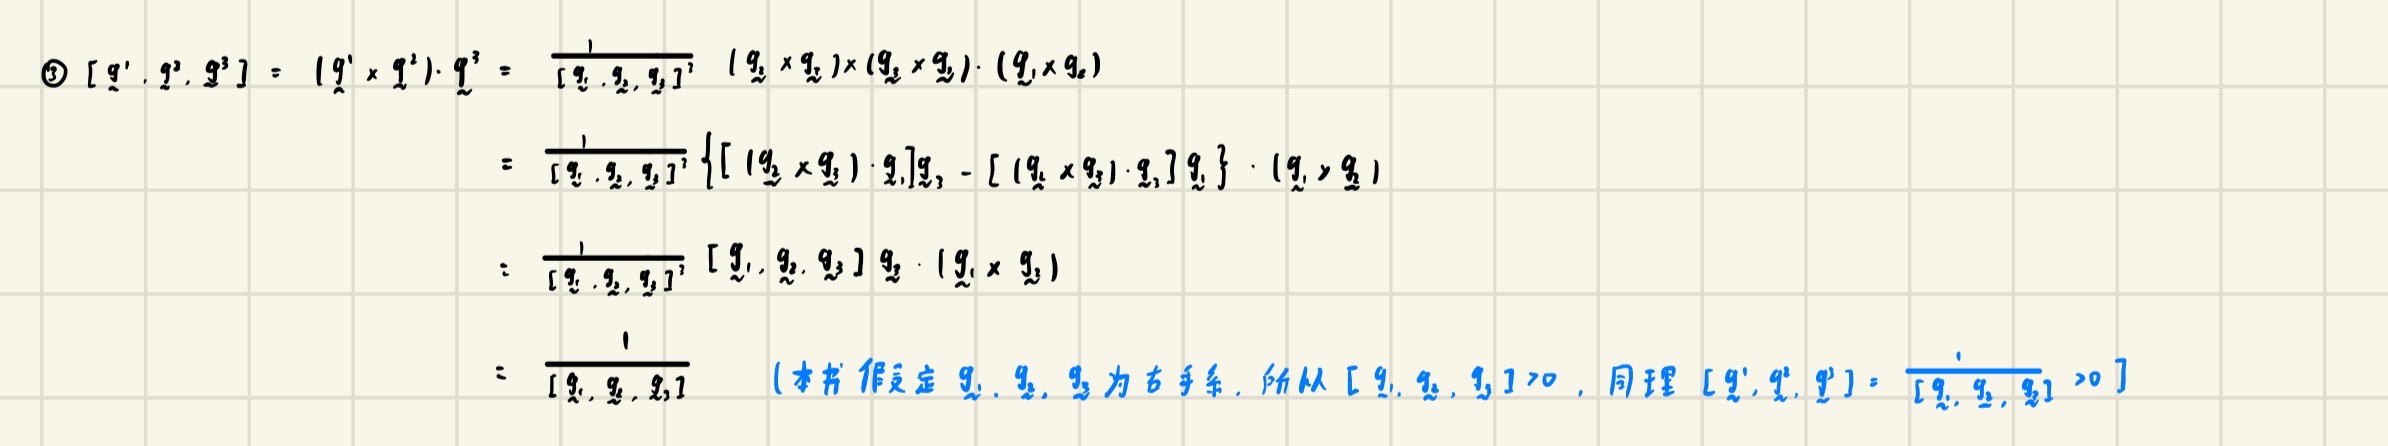 ③ [g¹, g², g³] = (g¹ × g²)·g³ = 1/[g₁, g₂, g₃]³ (g₂ × g₃)×(g₃ × g₁)·(g₁ × g₂)
= 1/[g₁, g₂, g₃]³ {[(g₂ × g₃)·g₁]g₃ - [(g₂ × g₃)·g₃]g₁}·(g₁ × g₂)
= 1/[g₁, g₂, g₃]³ [g₁, g₂, g₃] g₃·(g₁ × g₂)
= 1/[g₁, g₂, g₃] (本书假定 g₁, g₂, g₃ 为右手系, 所以 [g₁, g₂, g₃] >0, 同理 [g¹, g², g³] = 1/[g₁, g₂, g₃] >0]